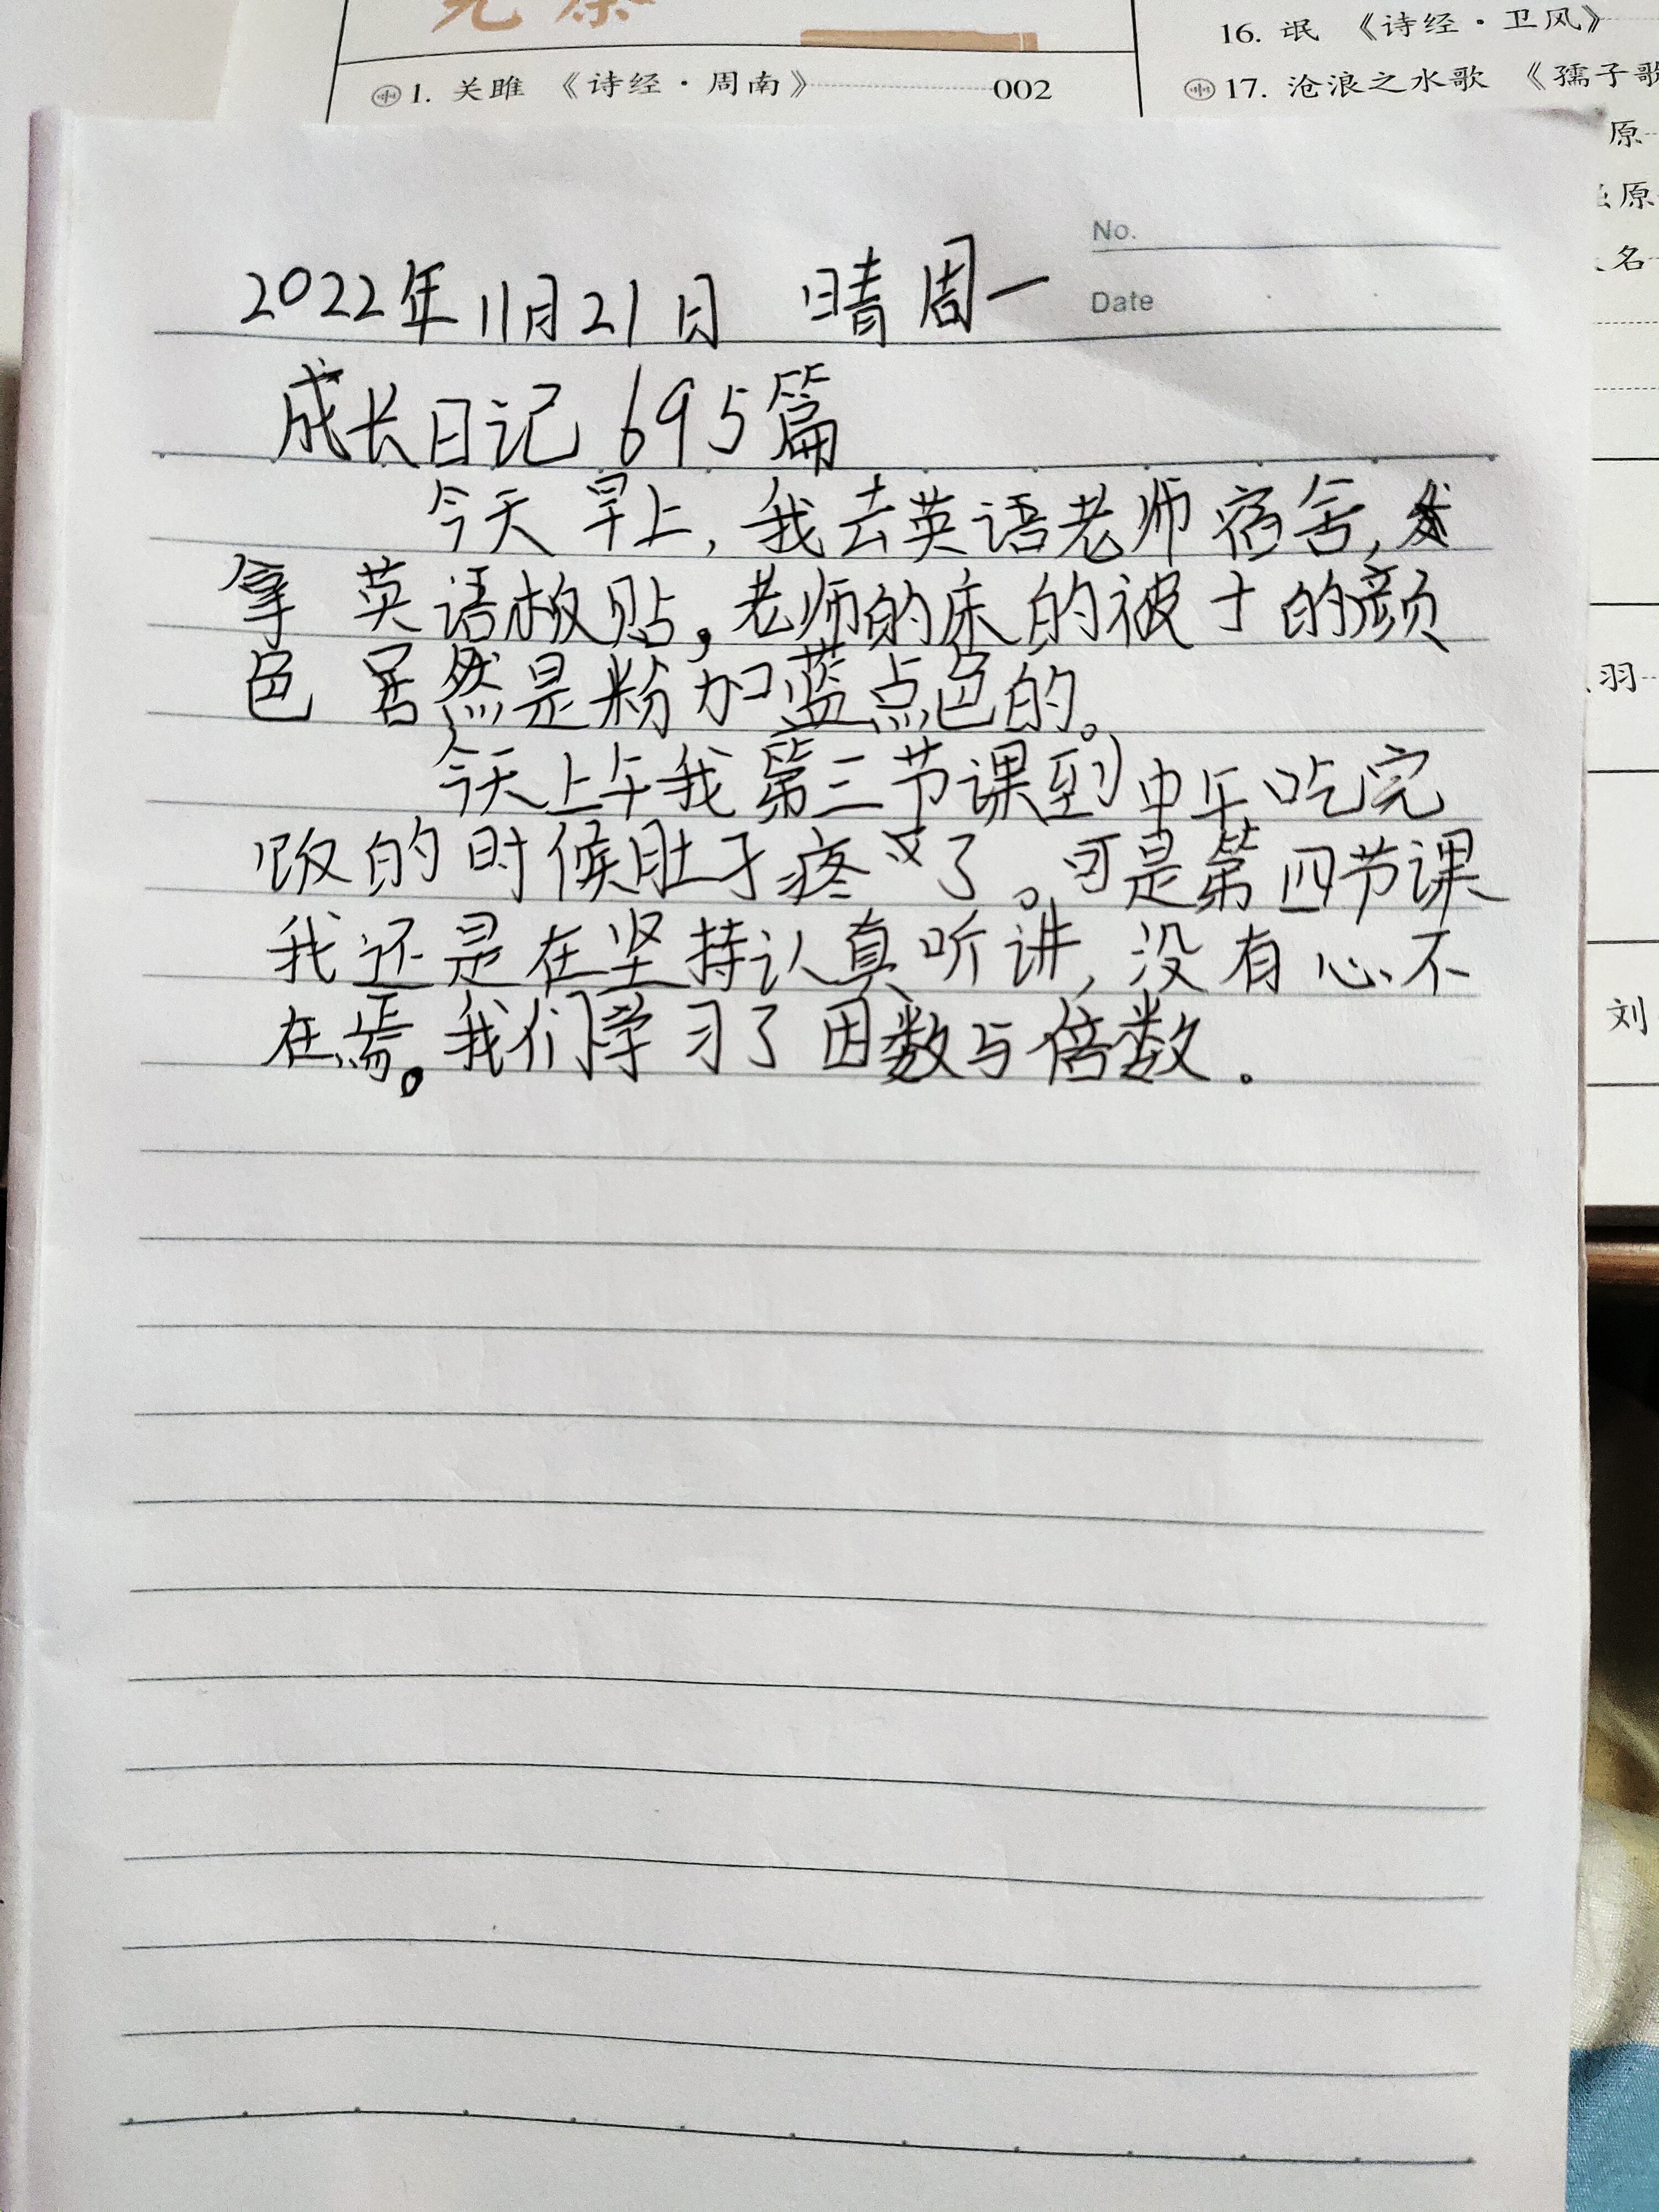 16. 氓 《诗经·卫风》
1. 关雎 《诗经·周南》 002
17. 沧浪之水歌 《孺子歌
原
原
名
羽
刘
No.
Date
2022年11月21日 晴 周一
成长日记 695篇
今天早上,我去英语老师宿舍,
拿英语板贴,老师的床的被子的颜
色居然是粉加蓝点色的。
今天上午我第三节课到中午吃完
饭的时候肚子疼了。可是第四节课
我还是在坚持认真听讲,没有心不
在焉。我们学习了因数与倍数.